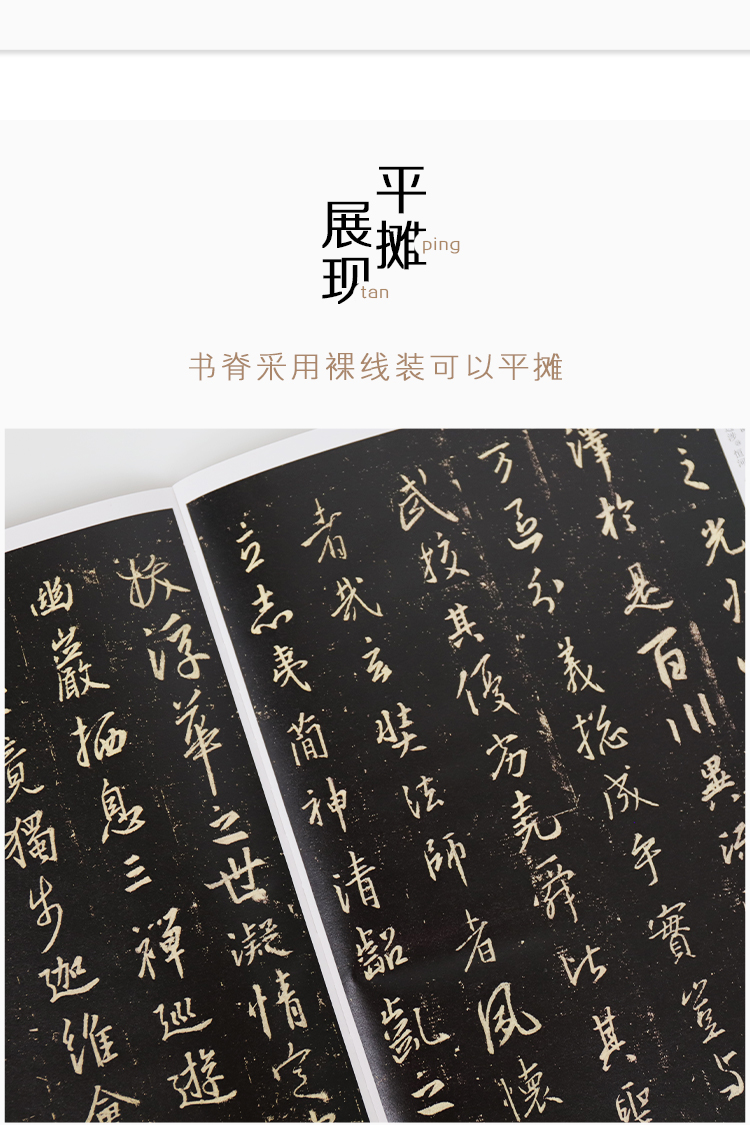 平摊
ping
展现
tan
书脊采用裸线装可以平摊
之光
澤於是百川異
万區分義揔成乎實豈與
武校其優劣堯舜比其聖
者哉玄奘法師者夙懷
立志夷簡神清齠齔之
拔浮華之世凝情定
幽巖栖息三禪巡遊
境獨步迦維會